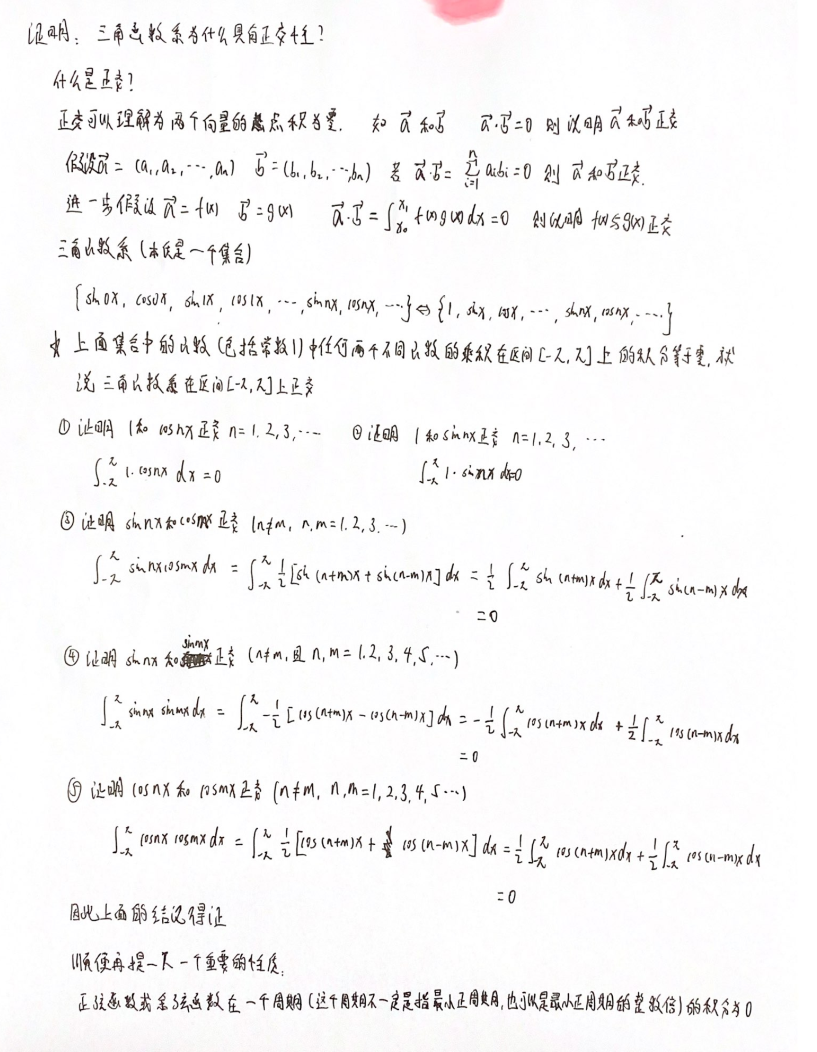 证明：三角函数系为什么具有正交性？
什么是正交？
正交可以理解为两个向量的点积为零. 如 a⃗ 和b⃗ a⃗·b⃗=0 则说明 a⃗ 和b⃗ 正交
假设a⃗ = (a₁,a₂,…,aₙ) b⃗ = (b₁,b₂,…,bₙ) 若 a⃗·b⃗ = ∑_{i=1}^{n} aᵢbᵢ=0 则 a⃗ 和b⃗正交.
进一步假设 a⃗ = f(x) b⃗ = g(x) a⃗·b⃗ = ∫_{x₀}^{x₁} f(x)g(x)dx=0 则说明 f(x)与g(x)正交
三角函数系 (本质是一个集合)
{sin0x, cos0x, sin1x, cos1x, …, sinnx, cosnx, …} ⇔ {1, sinx, cosx, …, sinnx, cosnx, …}
上面集合中的函数 (包括常数1) 中任何两个不同函数的乘积在区间[-π,π]上的积分等于零, 就
说三角函数系在区间[-π,π]上正交
① 证明 1和 cosnx 正交 n=1,2,3,… ② 证明 1和sinnx正交 n=1,2,3,…
∫_{-π}^{π} 1·cosnx dx = 0 ∫_{-π}^{π} 1·sinnx dx=0
③ 证明 sinnx和cosmx正交 (n≠m, n,m=1,2,3…)
∫_{-π}^{π} sinnxcosmx dx = ∫_{-π}^{π} ½[sin(n+m)x + sin(n-m)x] dx = ½ ∫_{-π}^{π} sin(n+m)x dx + ½ ∫_{-π}^{π} sin(n-m)x dx
=0
④ 证明 sinnx 和sinmx正交 (n≠m, 且 n,m=1,2,3,4,5,…)
∫_{-π}^{π} sinnx sinmx dx = ∫_{-π}^{π} -½[cos(n+m)x - cos(n-m)x] dx = -½ ∫_{-π}^{π} cos(n+m)x dx + ½ ∫_{-π}^{π} cos(n-m)x dx
=0
⑤ 证明 cosnx 和 cosmx 正交 (n≠m, n,m=1,2,3,4,5…)
∫_{-π}^{π} cosnx cosmx dx = ∫_{-π}^{π} ½[cos(n+m)x + cos(n-m)x] dx = ½ ∫_{-π}^{π} cos(n+m)xdx + ½ ∫_{-π}^{π} cos(n-m)x dx
=0
因此上面的结论得证
顺便再提一下一个重要的性质:
正弦函数或余弦函数在一个周期 (这个周期不一定是指最小正周期,也可以是最小正周期的整数倍) 的积分为0